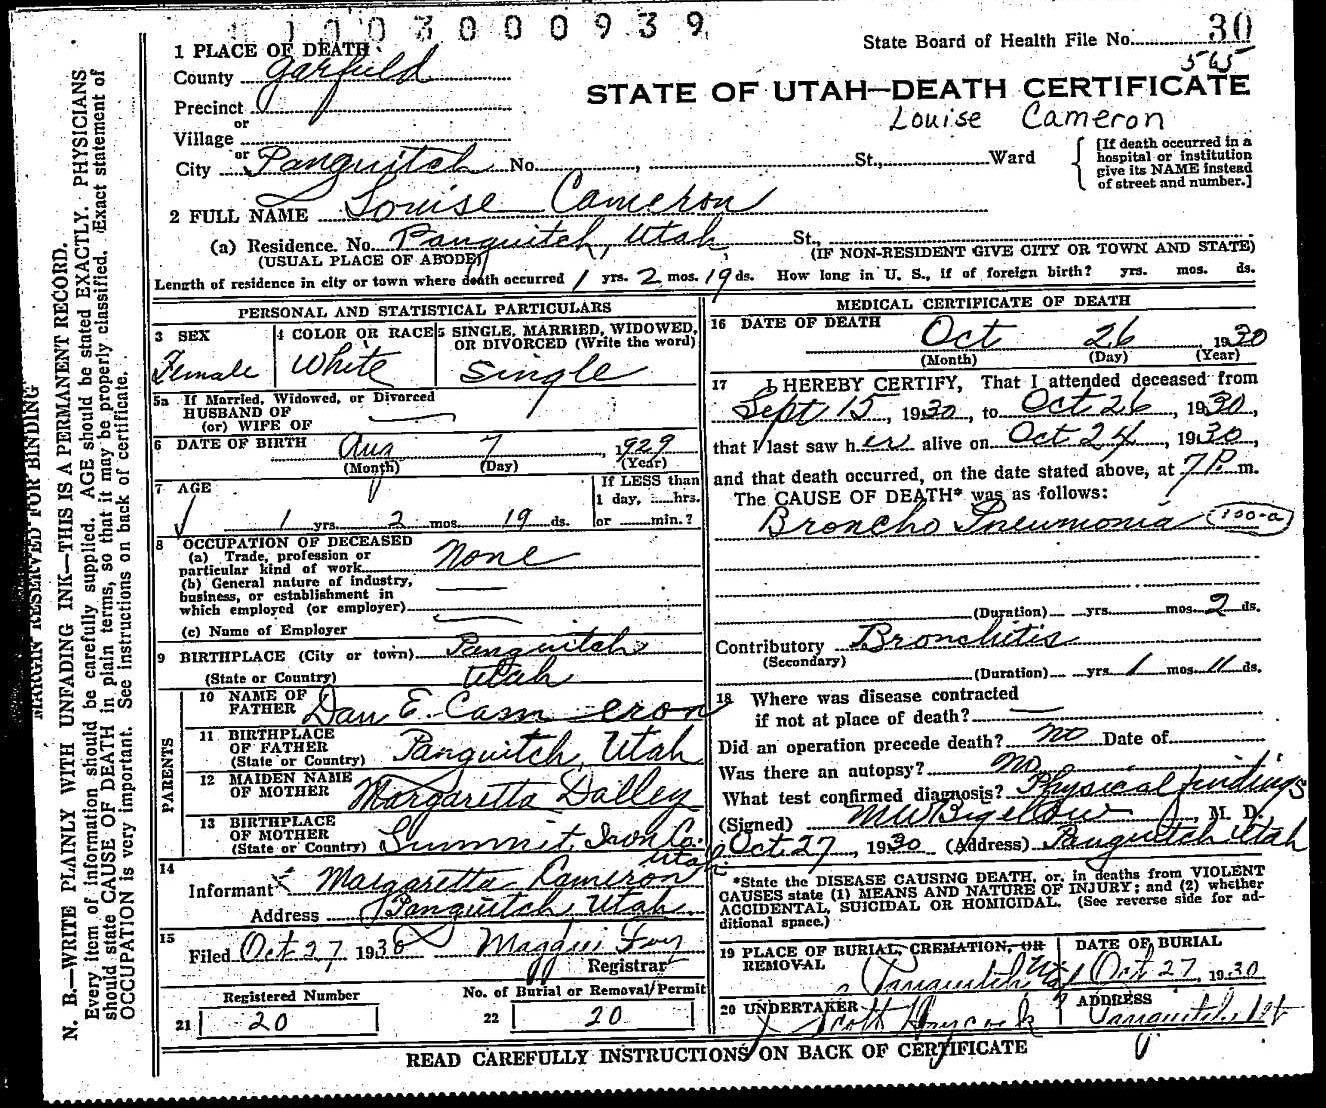 1 1 0 0 3 0 0 0 9 3 9
State Board of Health File No. 30
565
1 PLACE OF DEATH
County Garfield
Precinct
or
Village
or
City Panguitch No. , St., Ward
STATE OF UTAH—DEATH CERTIFICATE
Louise Cameron
[If death occurred in a
hospital or institution
give its NAME instead
of street and number.]
2 FULL NAME Louise Cameron
(a) Residence. No. Panguitch, Utah, St.,
(USUAL PLACE OF ABODE) (IF NON-RESIDENT GIVE CITY OR TOWN AND STATE)
Length of residence in city or town where death occurred 1 yrs. 2 mos. 19 ds. How long in U. S., if of foreign birth? yrs. mos. ds.
PERSONAL AND STATISTICAL PARTICULARS
3 SEX
Female
4 COLOR OR RACE
White
5 SINGLE, MARRIED, WIDOWED,
OR DIVORCED (Write the word)
Single
5a If Married, Widowed, or Divorced
HUSBAND OF
(or) WIFE OF
6 DATE OF BIRTH Aug 7, 1929
(Month) (Day) (Year)
7 AGE
1 yrs. 2 mos. 19 ds.
If LESS than
1 day, hrs.
or min.?
8 OCCUPATION OF DECEASED
(a) Trade, profession or
particular kind of work None
(b) General nature of industry,
business, or establishment in
which employed (or employer)
(c) Name of Employer
9 BIRTHPLACE (City or town) Panguitch
(State or Country) Utah
PARENTS
10 NAME OF
FATHER Dan E. Cameron
11 BIRTHPLACE
OF FATHER
(State or Country) Panguitch, Utah
12 MAIDEN NAME
OF MOTHER Margaretta Dalley
13 BIRTHPLACE
OF MOTHER
(State or Country) Summit, Iron Co.
Utah
14
Informant Margaretta Cameron
Address Panguitch, Utah
15
Filed Oct 27, 1930
Registrar
Registered Number
21 20
No. of Burial or Removal Permit
22 20
MEDICAL CERTIFICATE OF DEATH
16 DATE OF DEATH
Oct 26 1930
(Month) (Day) (Year)
17 I HEREBY CERTIFY, That I attended deceased from
Sept 15, 1930, to Oct 26, 1930,
that I last saw her alive on Oct 24, 1930,
and that death occurred, on the date stated above, at 7 P. m.
The CAUSE OF DEATH* was as follows:
Broncho Pneumonia 100-a
(Duration) yrs. mos. 2 ds.
Contributory Bronchitis
(Secondary)
(Duration) yrs. 1 mos. 11 ds.
18 Where was disease contracted
if not at place of death?
Did an operation precede death? no Date of
Was there an autopsy? no
What test confirmed diagnosis? Physical findings
(Signed) M W Bigelow, M. D.
Oct 27, 1930 (Address) Panguitch Utah
*State the DISEASE CAUSING DEATH, or, in deaths from VIOLENT
CAUSES state (1) MEANS AND NATURE OF INJURY; and (2) whether
ACCIDENTAL, SUICIDAL OR HOMICIDAL. (See reverse side for ad-
ditional space.)
19 PLACE OF BURIAL, CREMATION, OR
REMOVAL
Panguitch Utah
DATE OF BURIAL
Oct 27, 1930
20 UNDERTAKER
Scott Haycock
ADDRESS
Panguitch, Ut
READ CAREFULLY INSTRUCTIONS ON BACK OF CERTIFICATE
MARGIN RESERVED FOR BINDING
N. B.—WRITE PLAINLY WITH UNFADING INK—THIS IS A PERMANENT RECORD.
Every item of information should be carefully supplied. AGE should be stated EXACTLY. PHYSICIANS
should state CAUSE OF DEATH in plain terms, so that it may be properly classified. Exact statement of
OCCUPATION is very important. See instructions on back of certificate.